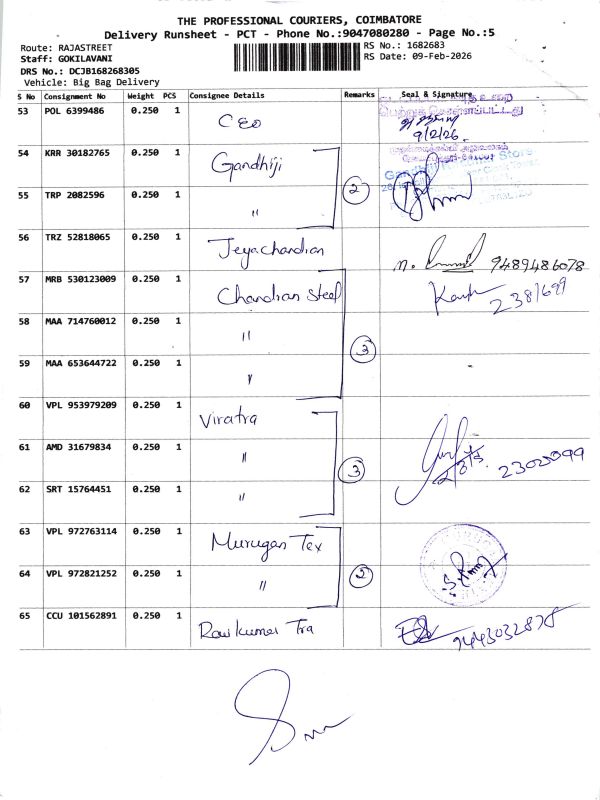 THE PROFESSIONAL COURIERS, COIMBATORE
Delivery Runsheet - PCT - Phone No.:9047080280 - Page No.:5
Route: RAJASTREET
RS No.: 1682683
Staff: GOKILAVANI
RS Date: 09-Feb-2026
DRS No.: DCJB168268305
Vehicle: Big Bag Delivery
S No Consignment No Weight PCS Consignee Details Remarks Seal & Signature
53 POL 6399486 0.250 1 CEO
பெற்றுக் கொள்ளப்பட்டது
9/2/26.
54 KRR 30182765 0.250 1 Gandhiji
55 TRP 2082596 0.250 1 " 2
56 TRZ 52818065 0.250 1 Jeyachandran 9489486078
57 MRB 530123009 0.250 1 Chandran Steel 2381699
58 MAA 714760012 0.250 1 "
3
59 MAA 653644722 0.250 1 "
60 VPL 953979209 0.250 1 Viratra
61 AMD 31679834 0.250 1 " 3 2302099
62 SRT 15764451 0.250 1 "
63 VPL 972763114 0.250 1 Murugan Tex
64 VPL 972821252 0.250 1 " 2
65 CCU 101562891 0.250 1 Ravi kumar Tra 9443032878